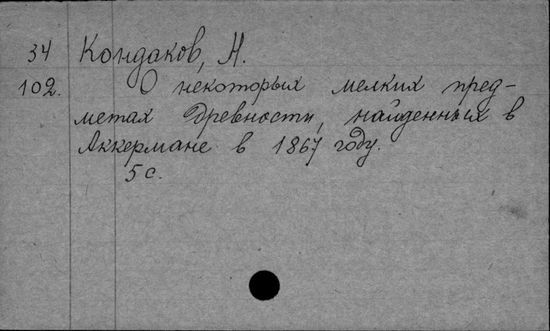 34 Кондаков, Н.
102. О некоторых мелких пред-
метах древности, найденных в
Аккермане в 1867 году.
5 с.